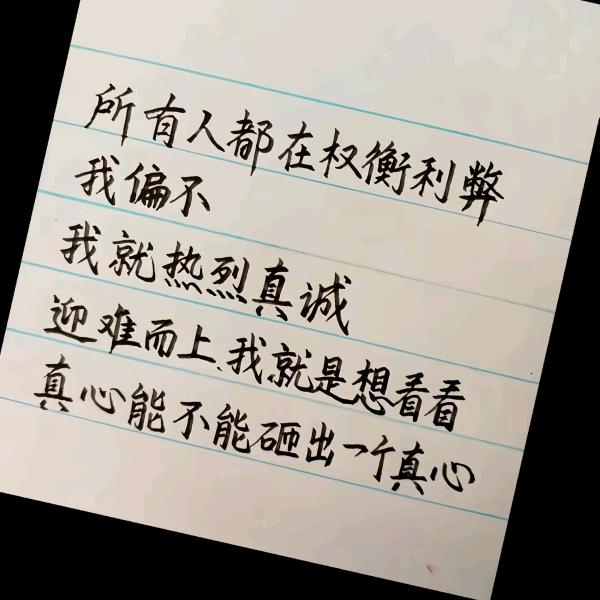 所有人都在权衡利弊
我偏不
我就热烈真诚
迎难而上、我就是想看看
真心能不能砸出一个真心